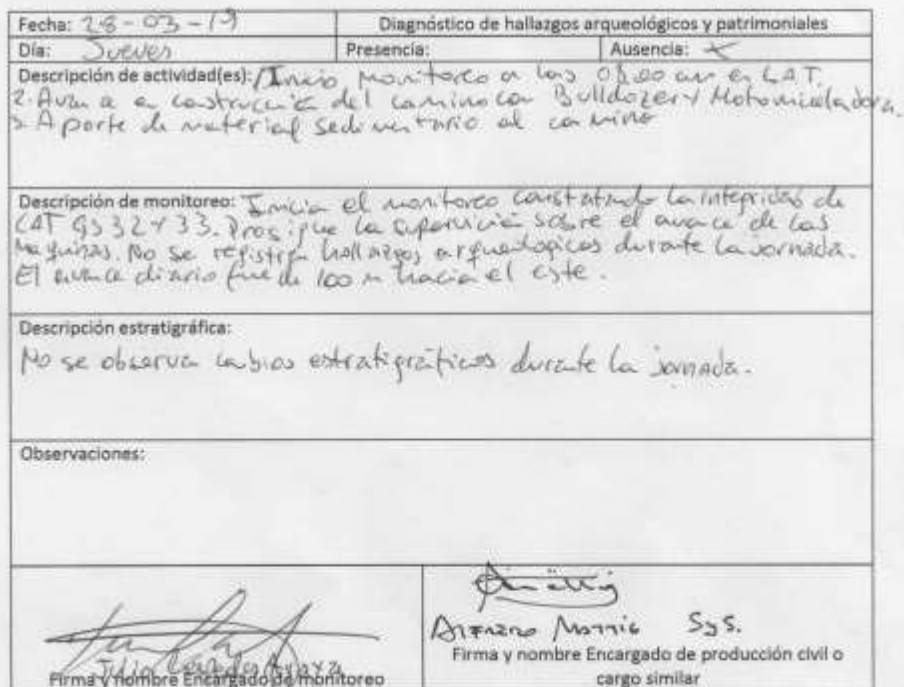 Fecha: 28-03-19
Diagnóstico de hallazgos arqueológicos y patrimoniales
Día: Jueves
Presencia:
Ausencia: X
Descripción de actividad(es): 1 Inicio monitoreo a las 08:00 am en LAT.
2. Avance en construcción del camino con Bulldozer y Motoniveladora.
3. Aporte de material sedimentario al camino
Descripción de monitoreo: Inicia el monitoreo constatando la integridad de
LAT GS32 y 33. Prosigue la supervisión sobre el avance de las
Maquinas. No se registran hallazgos arqueologicos durante la jornada.
El avance diario fue de 100 m hacia el este.
Descripción estratigráfica:
No se observa cambios estratigráficos durante la jornada.
Observaciones:
Julio
Firma y nombre Encargado de monitoreo
SyS.
Firma y nombre Encargado de producción civil o
cargo similar